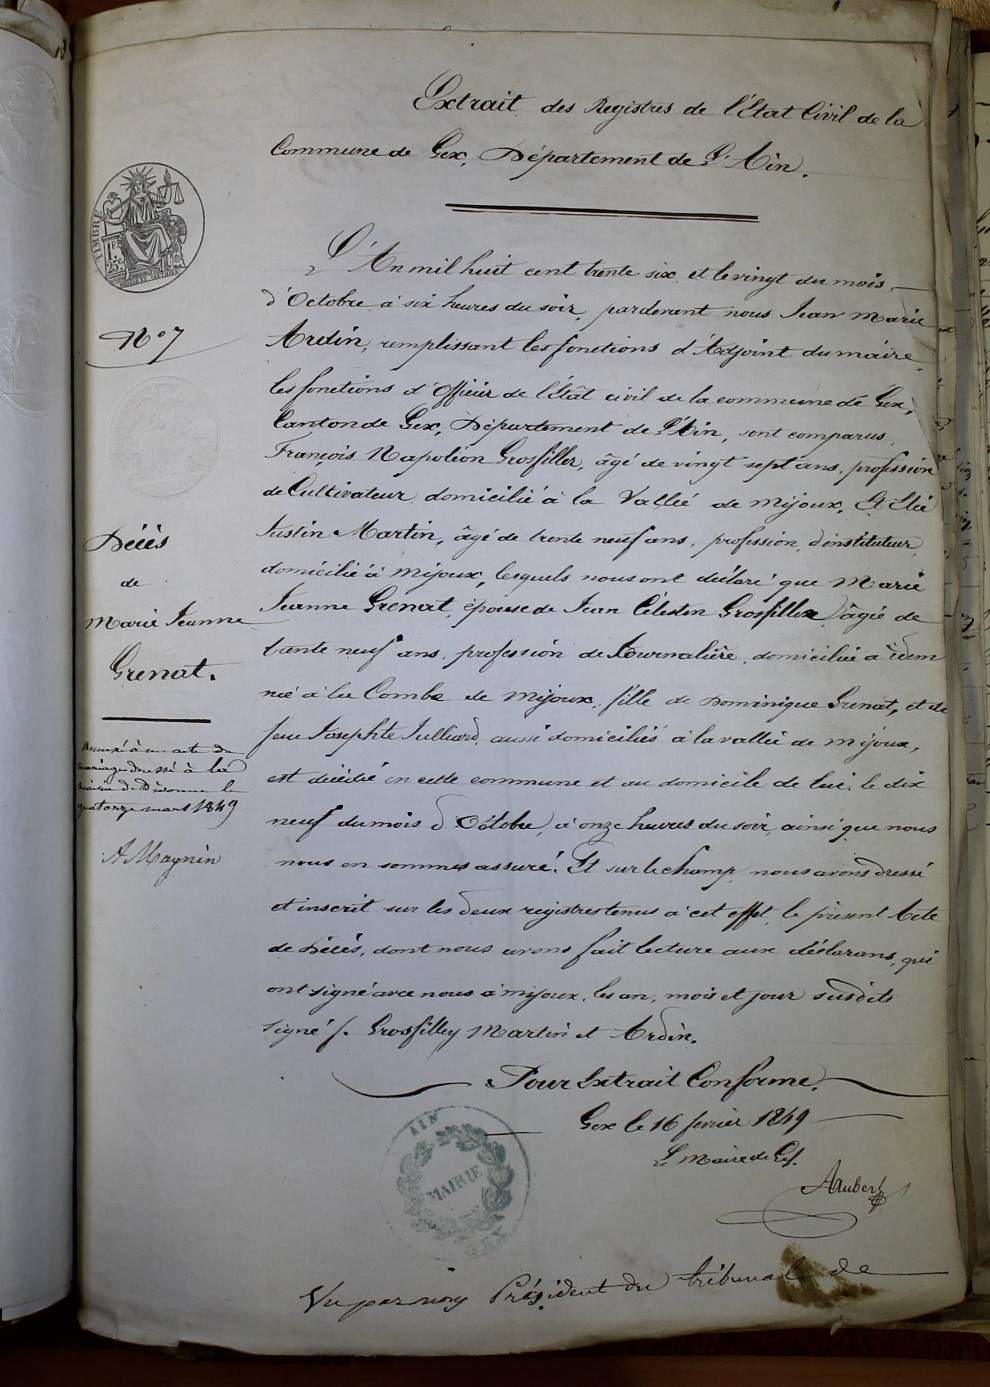 Extrait des Registres de l'Etat Civil de la
Commune de Gex, Département de L'Ain.
TIMBRE
1F
25c
N° 7
Décès
de
Marie Jeanne
Grenat.
Annexé à un acte de
mariage dressé à la
mairie de Divonne le
quatorze mars 1849
A Maynin
L'An mil huit cent trente six et le vingt du mois
d'Octobre à six heures du soir, pardevant nous Jean Marie
Ardin, remplissant les fonctions d'Adjoint du maire
les fonctions d'Officier de l'Etât civil de la commune de Gex,
Canton de Gex, Département de l'Ain, sont comparus
François Napoléon Grosfiller, âgé de vingt sept ans, profession
de Cultivateur domicilié à la Vallée de Mijoux, Et Elie
Justin Martin, âgé de trente neuf ans, profession d'instituteur
domicilié à Mijoux, lesquels nous ont déclaré que Marie
Jeanne Grenat, épouse de Jean Célestin Grosfiller, âgée de
trente neuf ans, profession de Journalière, domiciliée à idem
née à la Combe de Mijoux, fille de Dominique Grenat, et de
feue Josephte Julliard, aussi domiciliés à la vallée de mijoux,
est décédé en cette commune et au domicile de lui, le dix
neuf du mois d'Octobre, à onze heures du soir, ainsi que nous
nous en sommes assuré. Et sur le champ, nous avons dressé
et inscrit sur les deux registres tenus à cet effet, le présent Acte
de Décès, dont nous avons fait lecture aux déclarans, qui
ont signé avec nous à mijoux, les an, mois et jour susdits
Signé f. Grosfilley Martin et Ardin.
Pour Extrait Conforme.
Gex le 16 fevrier 1849
Le Maire de Gex.
AIN
MAIRIE
GEX
Vu par nous Président du tribunal de